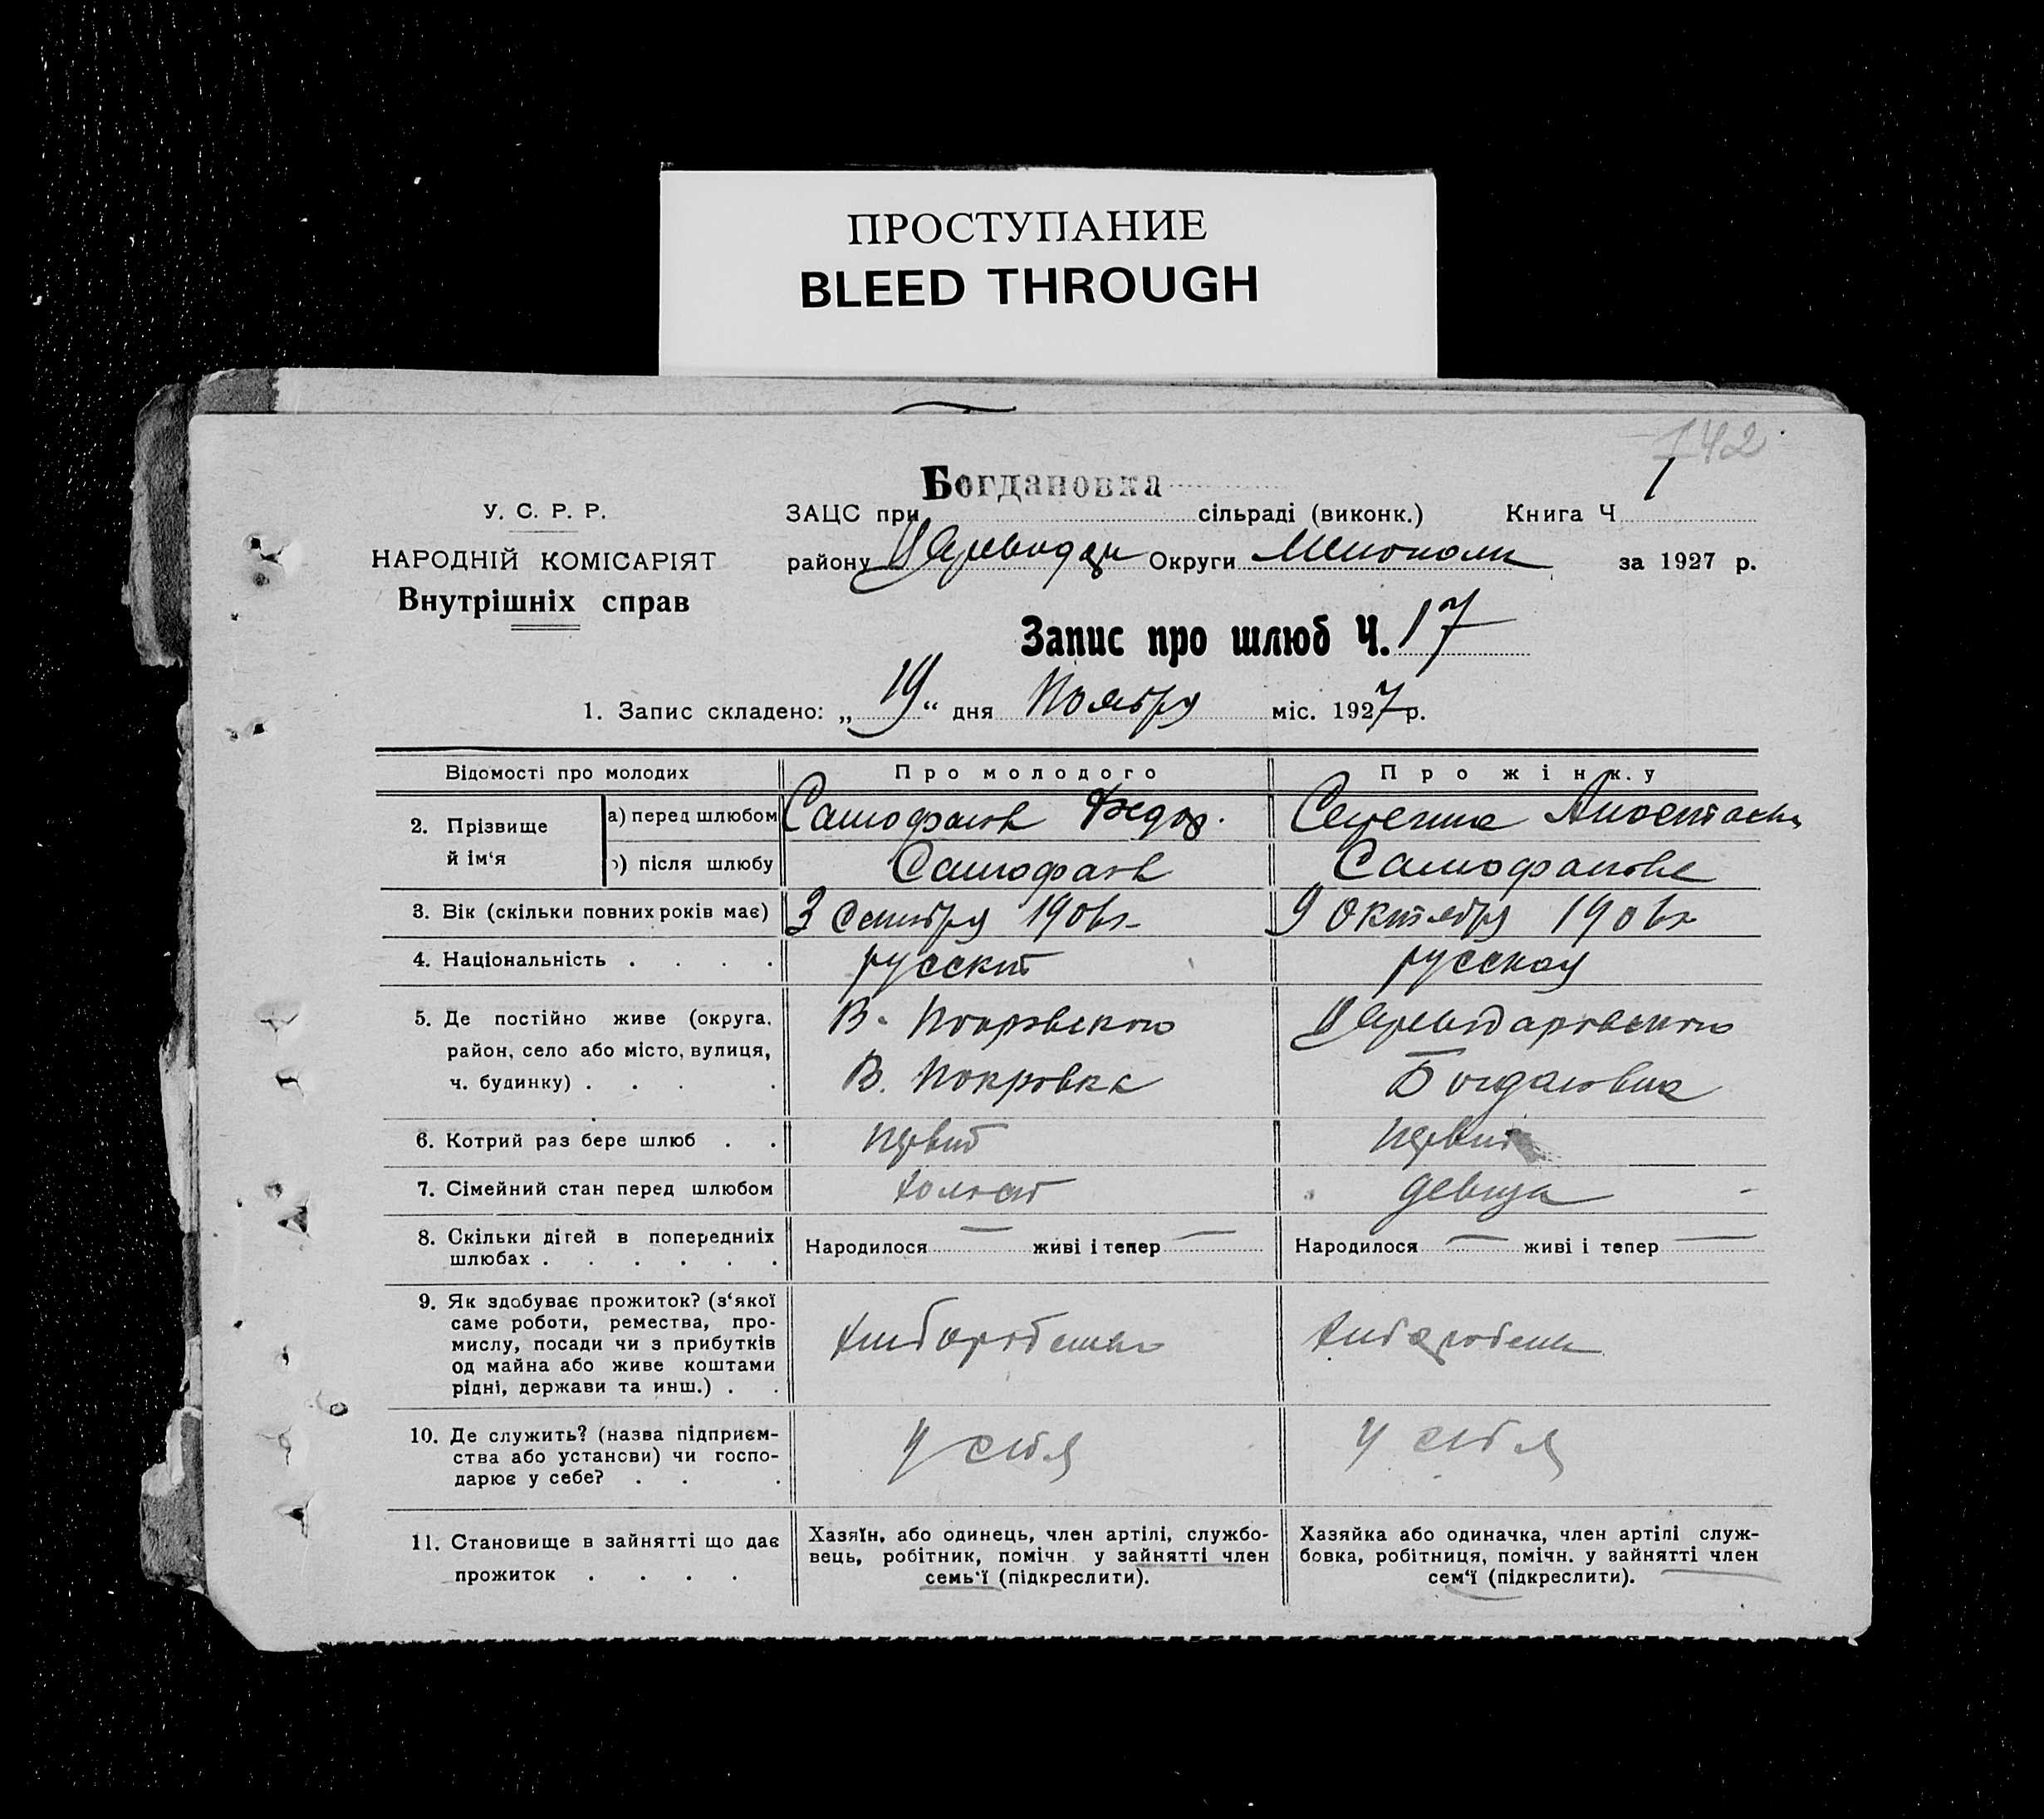 ПРОСТУПАНИЕ
BLEED THROUGH
742
Богдановка
У. С. Р. Р.
ЗАЦС при сільраді (виконк.) Книга Ч 1
НАРОДНІЙ КОМІСАРІЯТ
району Округи за 1927 р.
Внутрішніх справ
Запис про шлюб Ч. 17
1. Запис складено: „19“ дня Ноября міс. 1927 р.
Відомості про молодих Про молодого Про жінку
2. Прізвище й ім‘я
а) перед шлюбом Самофалов Федор. Анастасия
б) після шлюбу Самофалов Самофалова
3. Вік (скільки повних років має) 3 Сентября 1906 г 9 Октября 1906 г
4. Національність . . . . русский русская
5. Де постійно живе (округа, В. Покровского Цареводаровского
район, село або місто, вулиця,
ч. будинку) . . . . В. Покровка Богдановка
6. Котрий раз бере шлюб . . первий первий
7. Сімейний стан перед шлюбом холост девица
8. Скільки дітей в попередниіх Народилося — живі і тепер — Народилося — живі і тепер —
шлюбах . . . . . .
9. Як здобуває прожиток? (з‘якої
саме роботи, ремества, про-
мислу, посади чи з прибутків
од майна або живе коштами
рідні, держави та инш.) . .
10. Де служить? (назва підприєм- у себя у себя
ства або установи) чи госпо-
дарює у себе? . . .
11. Становище в зайнятті що дає
прожиток . . . .
Хазяїн, або одинець, член артілі, службо-
вець, робітник, помічн у зайнятті член
семь‘ї (підкреслити).
Хазяйка або одиначка, член артілі служ-
бовка, робітниця, помічн. у зайнятті член
сем‘ї (підкреслити).